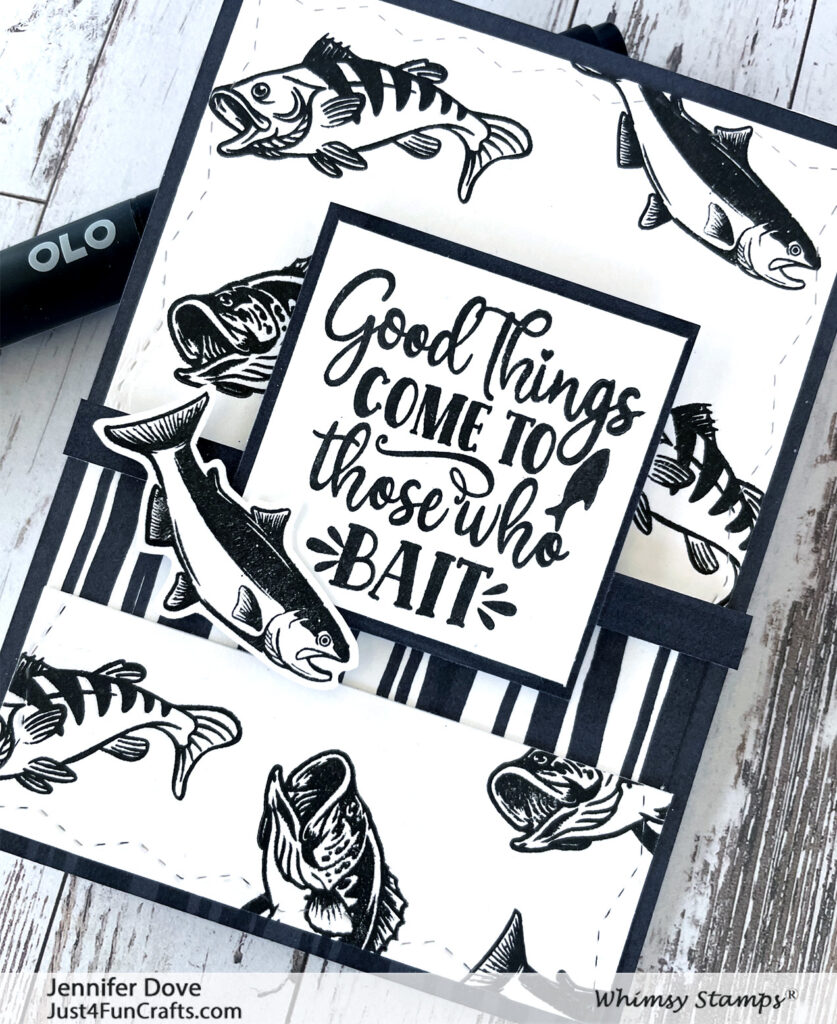 OLO
Good Things
COME TO
those who
BAIT
Jennifer Dove
Just4FunCrafts.com
Whimsy Stamps®